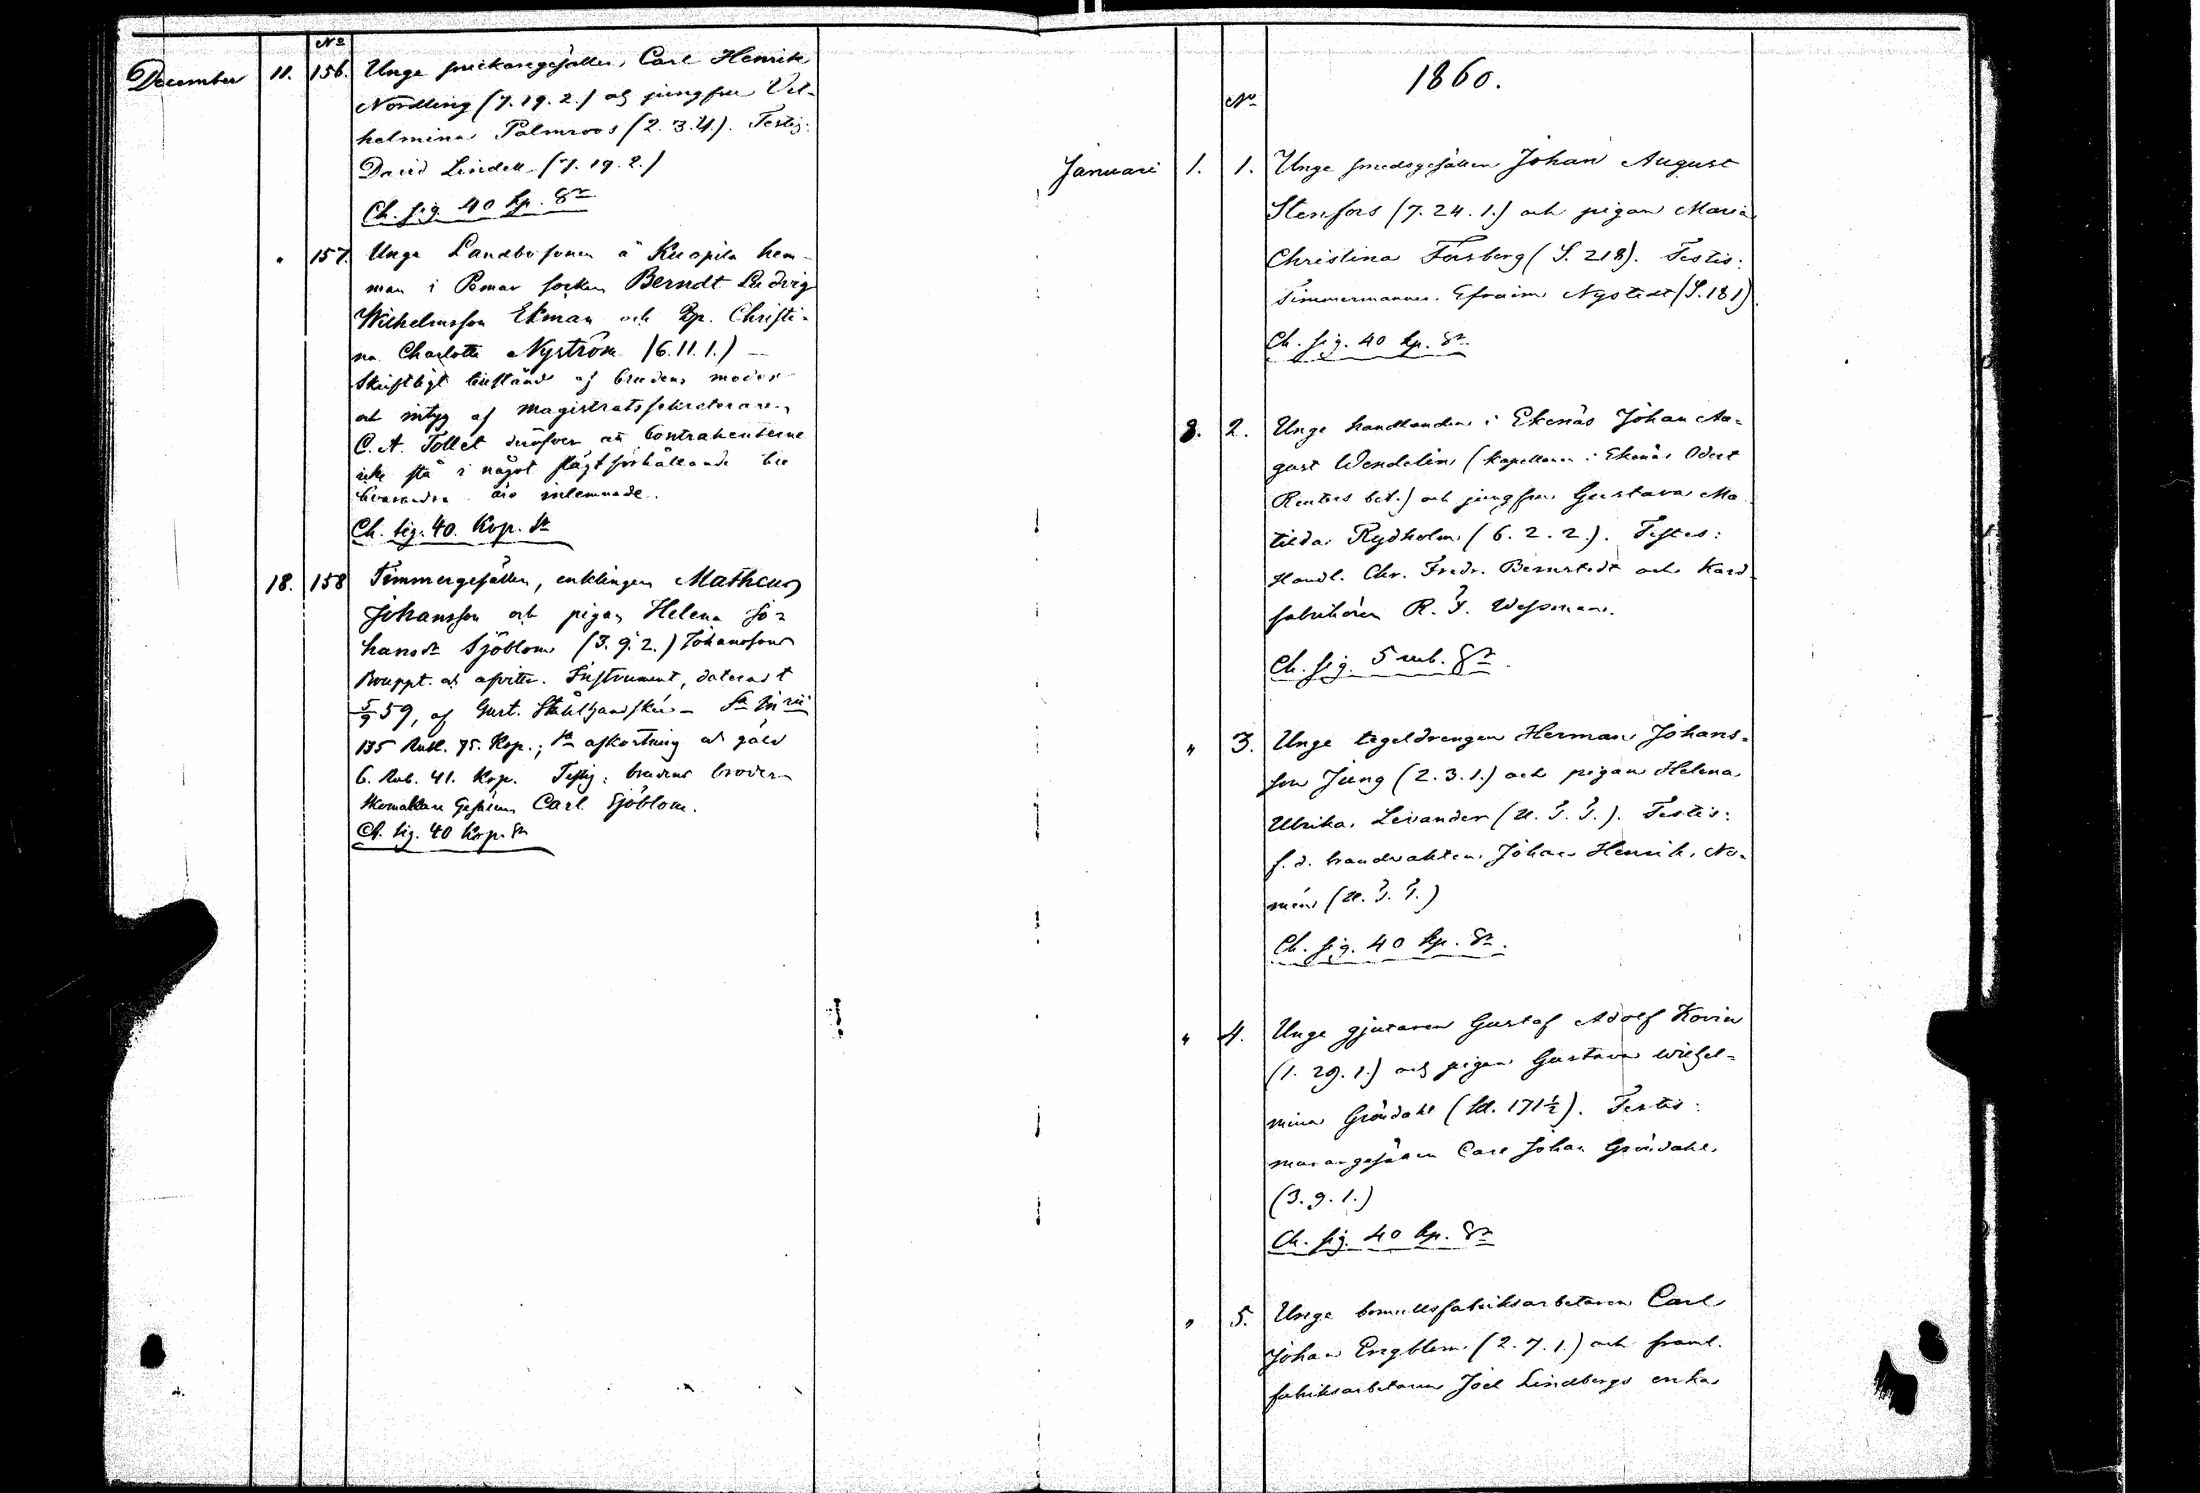 No
December 11. 156. Unge snickaregesällen Carl Henrik
Nordling (7.19.2.) och jungfru Vil-
helmina Palmroos (2.3.4.). Testis:
David Lindell (7.19.2.)
Ch. sig. 40 kp. Sr
" 157. Unge Landbosonen å Kuopila hem-
man i Pemar socken Berndt Ludvig
Wilhelmsson Ekman och Christi-
na Charlotta Nyström (6.11.1.) —
Skriftligt bifall af brudens moder
och intyg af Magistratssekreteraren
C. A. Tollet deröfver att Contrahenterne
icke stå i något slägtförhållande till
hvarandra äro inlemnade.
Ch. sig. 40. Kop. Sr
18. 158 Timmergesällen, enklingen Matheus
Johansson och pigan Helena Jo-
hansdr Sjöblom (3.9.2.) Johanssons
Bouppt. och afvittr. Instrument, dateradt
5/9 59, af Gust. Stålhandske
135 Rubl. 75. Kop.; afkortning och gäld
6. Rub. 41. Kop. Testis: brudens broder
Skomakare Gesällen Carl Sjöblom.
Ch. sig. 40 Kop. Sr
1860.
No
Januari 1. 1. Unge smedsgesällen Johan August
Stenfors (7.24.1.) och pigan Maria
Christina Forsberg (S. 218). Testis:
Timmermannen Efraim Nystedt (S. 181).
Ch. sig. 40 kp. Sr
8. 2. Unge handlanden i Ekenäs Johan Au-
gust Wendelin (kapellanen i Ekenäs Odert
Reuters bet.) och jungfru Gustava Ma-
tilda Rydholm (6.2.2.). Testes:
Handl. Chr. Fredr. Bernstedt och Kard-
fabrikören R. I. Wessman.
Ch. sig. 5 rub. Sr
" 3. Unge tegeldrengen Herman Johans-
son Jung (2.3.1.) och pigan Helena
Ulrika Levander (U. I. I.). Testis:
f. d. brandvakten Johan Henrik No-
mén (U. I. I.)
Ch. sig. 40 kp. Sr.
" 4. Unge gjutaren Gustaf Adolf Kovin
(1.29.1.) och pigan Gustava Wilhel-
mina Gröndahl (Ll. 171½). Testis:
muraregesällen Carl Johan Gröndahl
(3.9.1.)
Ch. sig. 40 kp. Sr
" 5. Unge bomullsfabriksarbetaren Carl
Johan Engblom (2.7.1.) och framl.
fabriksarbetaren Joel Lindbergs enka